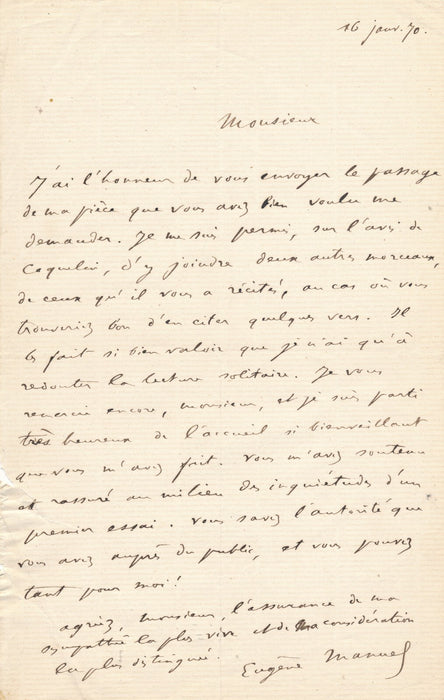 16 janv. 70.
Monsieur
J'ai l'honneur de vous envoyer le passage
de ma pièce que vous avez bien voulu me
demander. Je me suis permis, sur l'avis de
Coquelin, d'y joindre deux autres morceaux,
de ceux qu'il vous a récités, au cas où vous
trouveriez bon d'en citer quelques vers. Il
les fait si bien valoir que je n'ai qu'à
redouter la lecture solitaire. Je vous
remercie encore, monsieur, et je suis parti
très heureux de l'accueil si bienveillant
que vous m'avez fait. Vous m'avez soutenu
et rassuré au milieu des inquiétudes d'un
premier essai. Vous savez l'autorité que
vous avez auprès du public, et vous pouvez
tant pour moi!
agréez, monsieur, l'assurance de ma
sympathie la plus vive et de ma considération
la plus distinguée.
Eugène Manuel